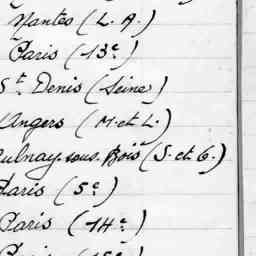 Nantes (L. A.)
Paris (13e)
St. Denis (Seine)
Angers (M. et L.)
Aulnay-sous-Bois (S. et O.)
Paris (5e)
Paris (14e)
Paris (15e)